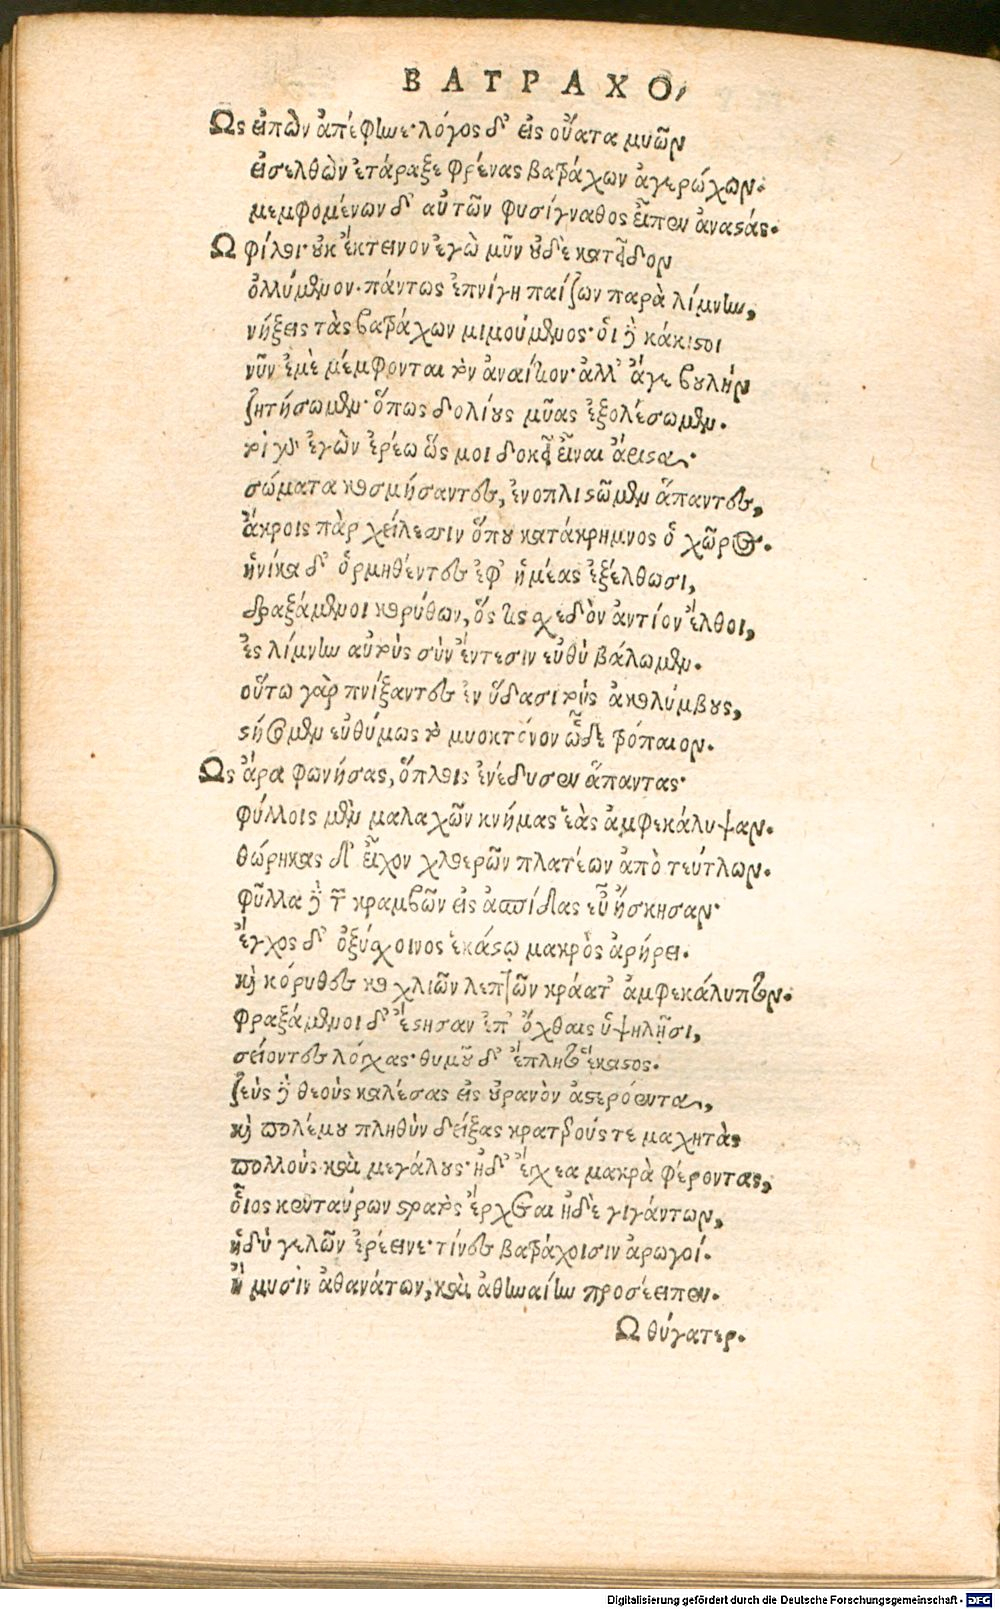 ΒΑΤΡΑΧΟ,
Ως εἰπὼν ἀπέφηνε· λόγος δ' εἰς οὔατα μυῶν
εἰσελθὼν ἐτάραξε φρένας βατράχων ἀγερώχων.
μεμφομένων δ' αὐτῶν φυσίγναθος εἶπεν ἀναστάς.
Ω φίλοι· οὐκ ἔκτεινον ἐγὼ μῦν οὐδὲ κατεῖδον
ὀλλύμενον. πάντως ἐπνίγη παίζων παρὰ λίμνην,
νήξεις τὰς βατράχων μιμούμενος· οἱ δὲ κάκιστοι
νῦν ἐμὲ μέμφονται τὸν ἀναίτιον· ἀλλ' ἄγε βουλὴν
ζητήσωμεν· ὅπως δολίους μῦας ἐξολέσωμεν.
τοὶ γὰρ ἐγὼν ἐρέω ὥς μοι δοκεῖ εἶναι ἄριστα·
σώματα κοσμήσαντες, ἐνοπλιστῶμεν ἅπαντες,
ἄκροις πὰρ χείλεσσιν ὅπου κατάκρημνος ὁ χῶρος.
ἡνίκα δ' ὁρμηθέντες ἐφ' ἡμέας ἐξέλθωσι,
δραξάμενοι κορύθων, ὅς τις σχεδὸν ἀντίον ἔλθοι,
ἐς λίμνην αὐτοὺς σὺν ἔντεσιν εὐθὺ βάλωμεν.
οὕτω γὰρ πνίξαντες ἐν ὕδασι τοὺς ἀκολύμβους,
στήσομεν εὐθύμως τὸ μυοκτόνον ὧδε τρόπαιον.
Ως ἄρα φωνήσας, ὅπλοις ἐνέδυσεν ἅπαντας·
φύλλοις μὲν μαλαχῶν κνήμας ἑὰς ἀμφεκάλυψαν.
θώρηκας δ' εἶχον χλοερῶν πλατέων ἀπὸ τεύτλων.
φῦλλα δὲ τῶν κραμβῶν εἰς ἀσπίδας εὖ ἤσκησαν·
ἔγχος δ' ὀξύσχοινος ἑκάστῳ μακρὸς ἀρήρει.
καὶ κόρυθες κοχλιῶν λεπτῶν κράατ' ἀμφεκάλυπτον.
φραξάμενοι δ' ἔστησαν ἐπ' ὄχθαις ὑψηλῇσι,
σείοντες λόγχας· θυμοῦ δ' ἔπλητο ἕκαστος.
ζεὺς δὲ θεοὺς καλέσας εἰς οὐρανὸν ἀστερόεντα,
καὶ πολέμου πληθὺν δείξας κρατερούς τε μαχητὰς
πολλοὺς καὶ μεγάλους· ἠδ' ἔγχεα μακρὰ φέροντας,
οἷος κενταύρων στρατὸς ἔρχεται ἠδὲ γιγάντων,
ἡδὺ γελῶν ἐρέεινε· τίνες βατράχοισιν ἀρωγοί.
ἢ μυσὶν ἀθανάτων, καὶ ἀθηναίην προσέειπεν.
Ω θύγατερ.
Digitalisierung gefördert durch die Deutsche Forschungsgemeinschaft - DFG